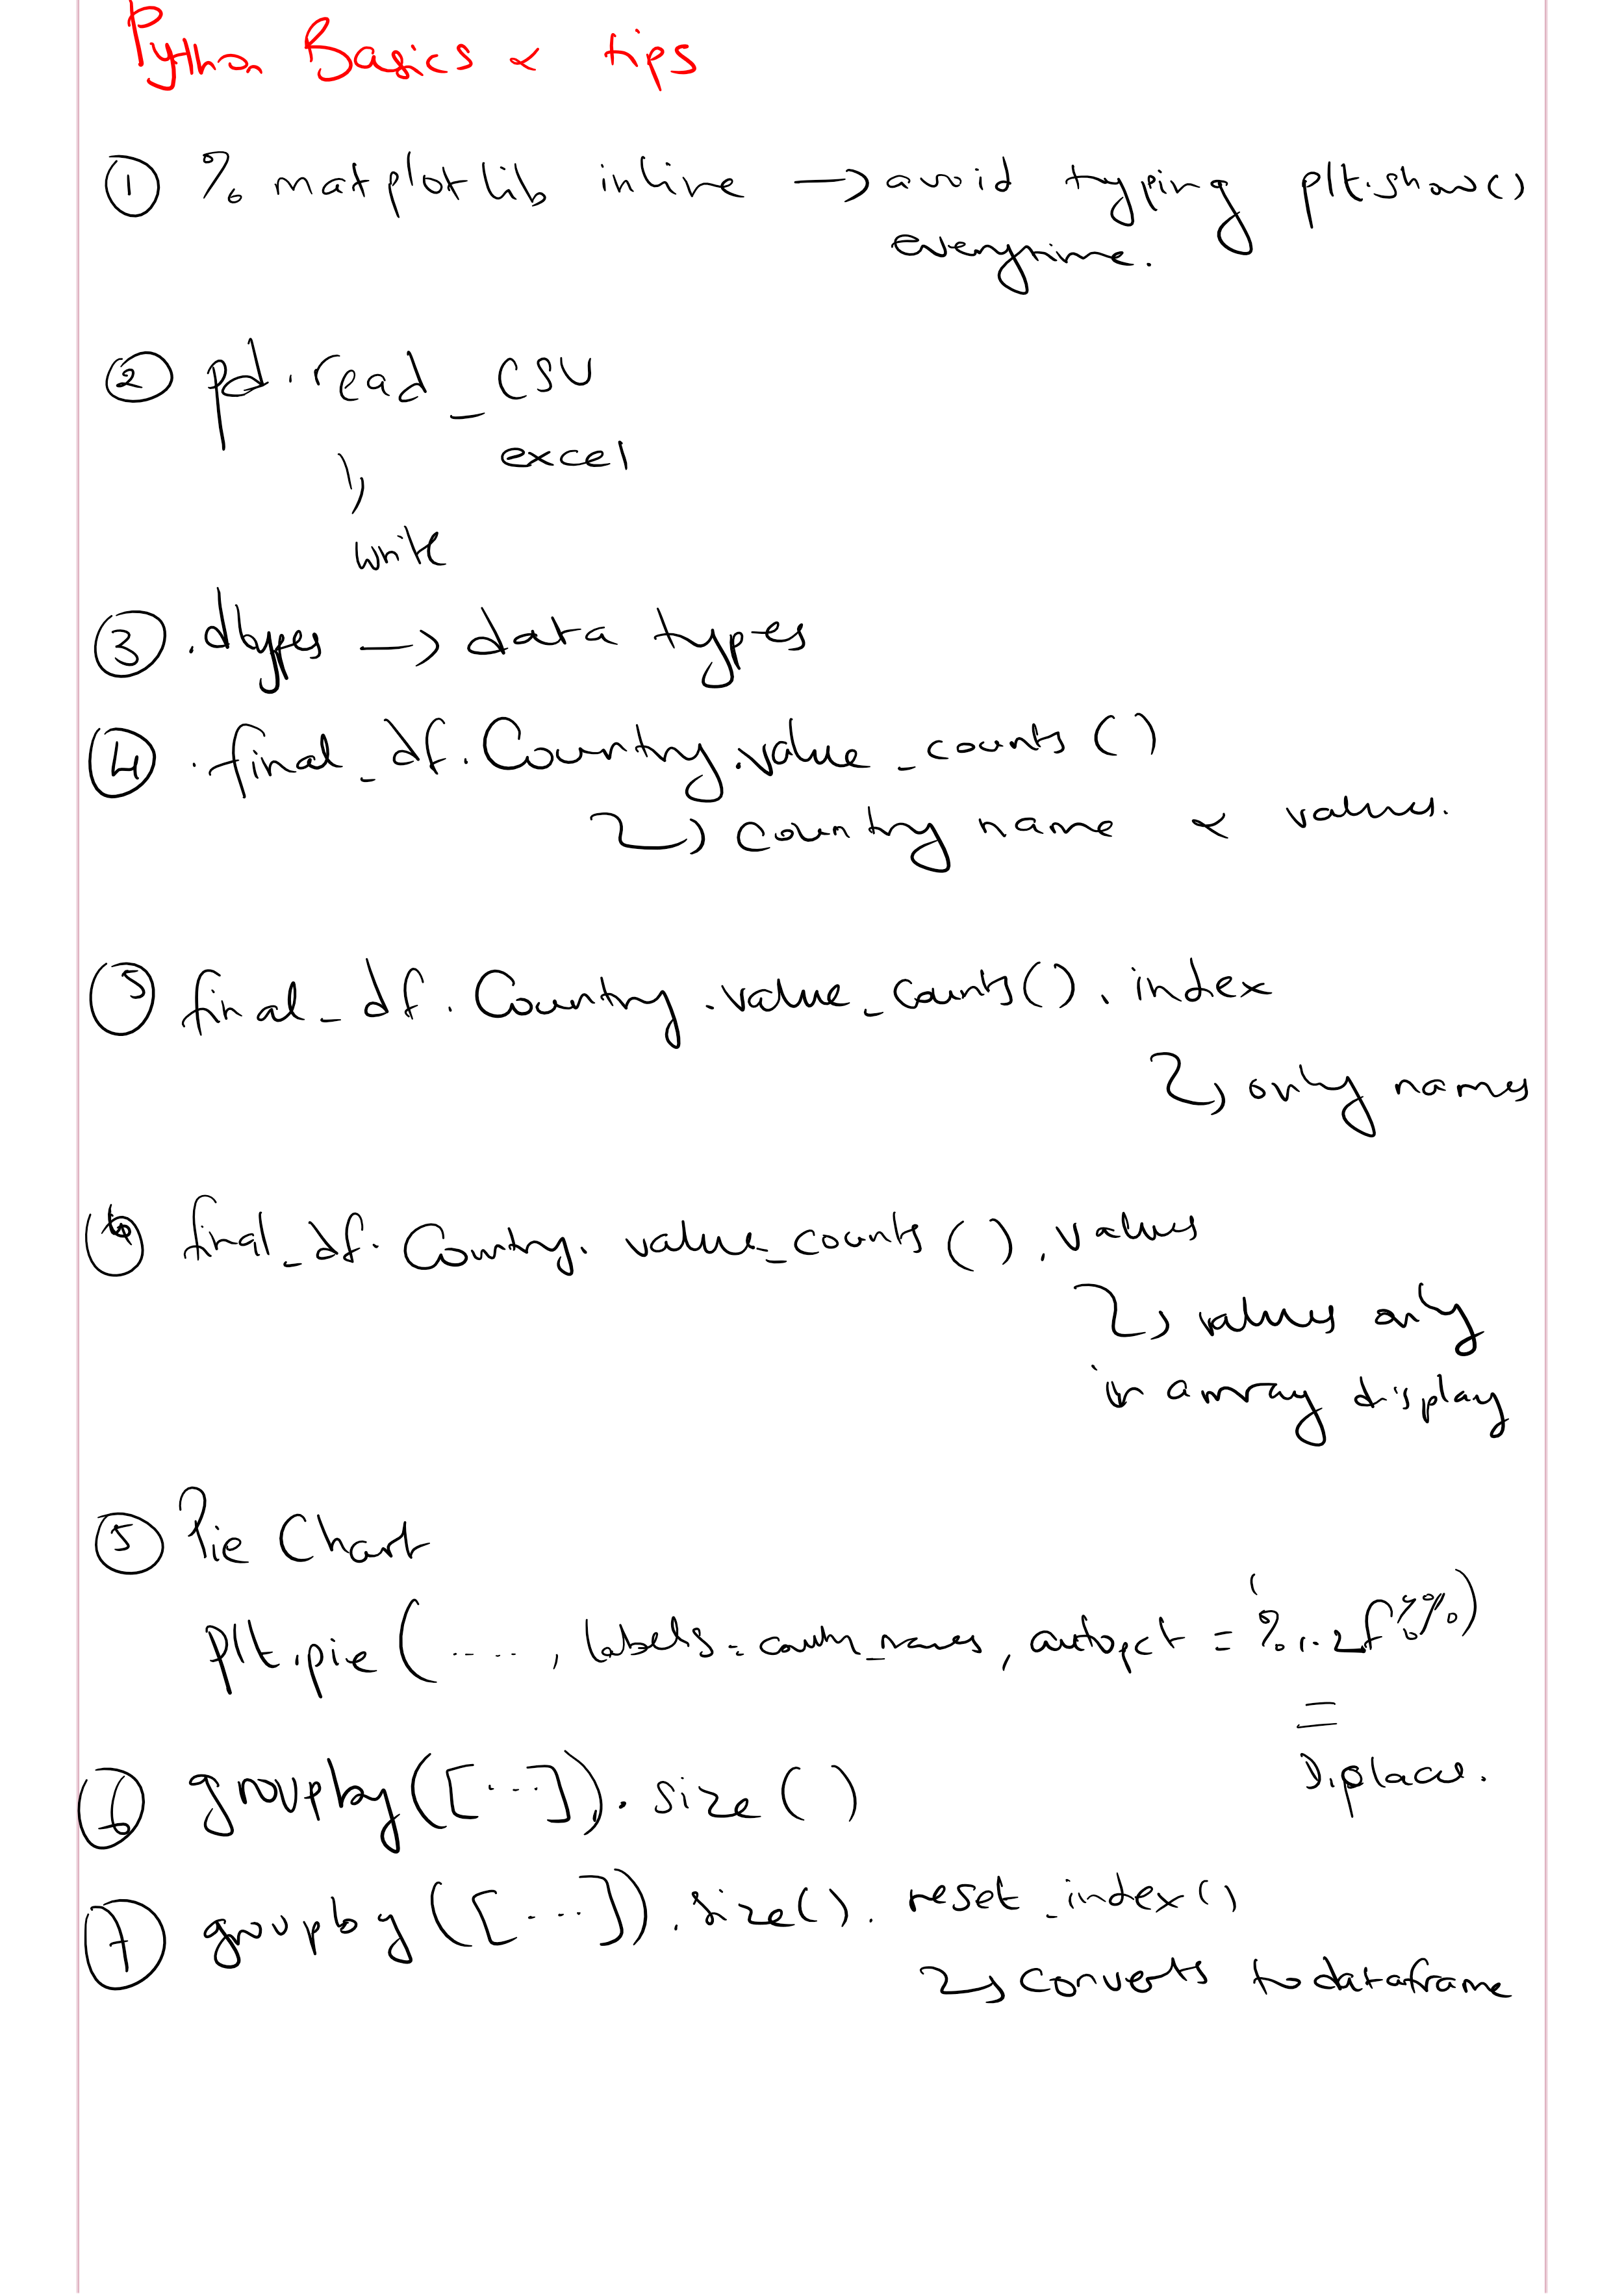 Python Basics & tips
① %matplotlib inline → avoid typing plt.show()
everytime.
② pd.read_csv
excel
write
③ .dtypes → data types
④ .final_df.Country.value_counts()
↳ Country name & values.
⑤ final_df.Country.value_counts().index
↳ only names
⑥ final_df.Country.value_counts().values
↳ values only
in array display
⑤ Pie Chart
plt.pie(....., labels=count_names, autopct = '%1.2f%%)
D.places.
⑥ groupby([...]).size()
⑦ groupby([...]).size().reset_index()
↳ converts to dataframe